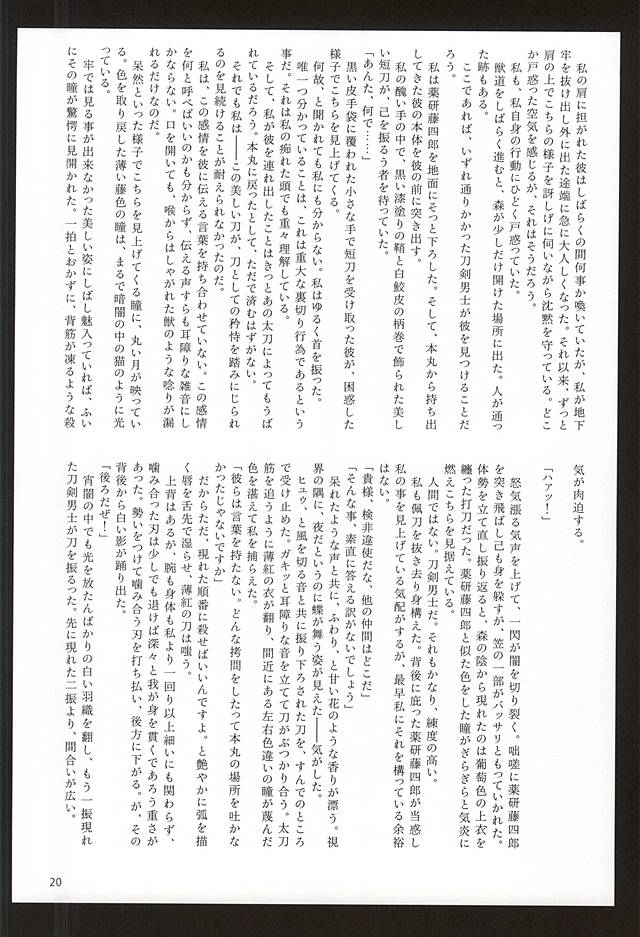 私の肩に担がれた彼はしばらくの間何事か喚いていたが、私が地下
牢を抜け出し外に出た途端に急に大人しくなった。それ以来、ずっと
肩の上でこちらの様子を訝しげに伺いながら沈黙を守っている。どこ
か戸惑った空気を感じるが、それはそうだろう。
　私も、私自身の行動にひどく戸惑っていた。
　獣道をしばらく進むと、森が少しだけ開けた場所に出た。人が通っ
た跡もある。
　ここであれば、いずれ通りかかった刀剣男士が彼を見つけることだ
ろう。
　私は薬研藤四郎を地面にそっと下ろした。そして、本丸から持ち出
してきた彼の本体を彼の前に突き出す。
　私の醜い手の中で、黒い漆塗りの鞘と白鮫皮の柄巻で飾られた美し
い短刀が、己を振るう者を待っていた。
「あんた、何で……」
　黒い皮手袋に覆われた小さな手で短刀を受け取った彼が、困惑した
様子でこちらを見上げてくる。
　何故、と聞かれても私にも分からない。私はゆるく首を振った。
　唯一つ分かっていることは、これは重大な裏切り行為であるという
事だ。それは私の痴れた頭でも重々理解している。
　そして、私が彼を連れ出したことはきっとあの太刀によってもうば
れているだろう。本丸に戻ったとして、ただで済むはずがない。
　それでも私は――この美しい刀が、刀としての矜恃を踏みにじられ
るのを見続けることが耐えられなかったのだ。
　私は、この感情を彼に伝える言葉を持ち合わせていない。この感情
を何と呼べばいいのかも分からず、伝える声すらも耳障りな雑音にし
かならない。口を開いても、喉からはしゃがれた獣のような唸りが漏
れるだけなのだ。
　呆然といった様子でこちらを見上げてくる瞳に、丸い月が映ってい
る。色を取り戻した薄い藤色の瞳は、まるで暗闇の中の猫のように光
っている。
　牢では見る事が出来なかった美しい姿にしばし魅入っていれば、ふい
にその瞳が驚愕に見開かれた。一拍とおかずに、背筋が凍るような殺
気が肉迫する。
「ハアッ！」
　怒気漲る気声を上げて、一閃が闇を切り裂く。咄嗟に薬研藤四郎
を突き飛ばし己も身を躱すが、笠の一部がバッサリともっていかれた。
体勢を立て直し振り返ると、森の陰から現れたのは葡萄色の上衣を
纏った打刀だった。薬研藤四郎と似た色をした瞳がぎらぎらと気炎に
燃えこちらを見据えている。
　人間ではない。刀剣男士だ。それもかなり、練度の高い。
　私も佩刀を抜き去り身構えた。背後に庇った薬研藤四郎が当惑し
私の事を見上げている気配がするが、最早私にそれを構っている余裕
はない。
「貴様、検非違使だな、他の仲間はどこだ」
「そんな事、素直に答える訳がないでしょう」
　呆れたような声と共に、ふわり、と甘い花のような香りが漂う。視
界の隅に、夜だというのに蝶が舞う姿が見えた――気がした。
　ヒュゥ、と風を切る音と共に振り下ろされた刀を、すんでのところ
で受け止めた。ガキッと耳障りな音を立てて刀がぶつかり合う。太刀
筋を追うように薄紅の衣が翻り、間近にある左右色違いの瞳が蔑んだ
色を湛えて私を捕らえた。
「彼らは言葉を持たない。どんな拷問をしたって本丸の場所を吐かな
かったじゃないですか」
　だからただ、現れた順番に殺せばいいんですよ。と艶やかに弧を描
く唇を舌先で湿らせ、薄紅の刀は嗤う。
　上背はあるが、腕も身体も私より一回り以上細いにも関わらず、
噛み合った刃は少しでも退けば深々と我が身を貫くであろう重さが
あった。勢いをつけて噛み合う刃を打ち払い、後方に下がる。が、その
背後から白い影が踊り出た。
「後ろだぜ！」
　宵闇の中でも光を放たんばかりの白い羽織を翻し、もう一振現れ
た刀剣男士が刀を振るった。先に現れた二振より、間合いが広い。
20